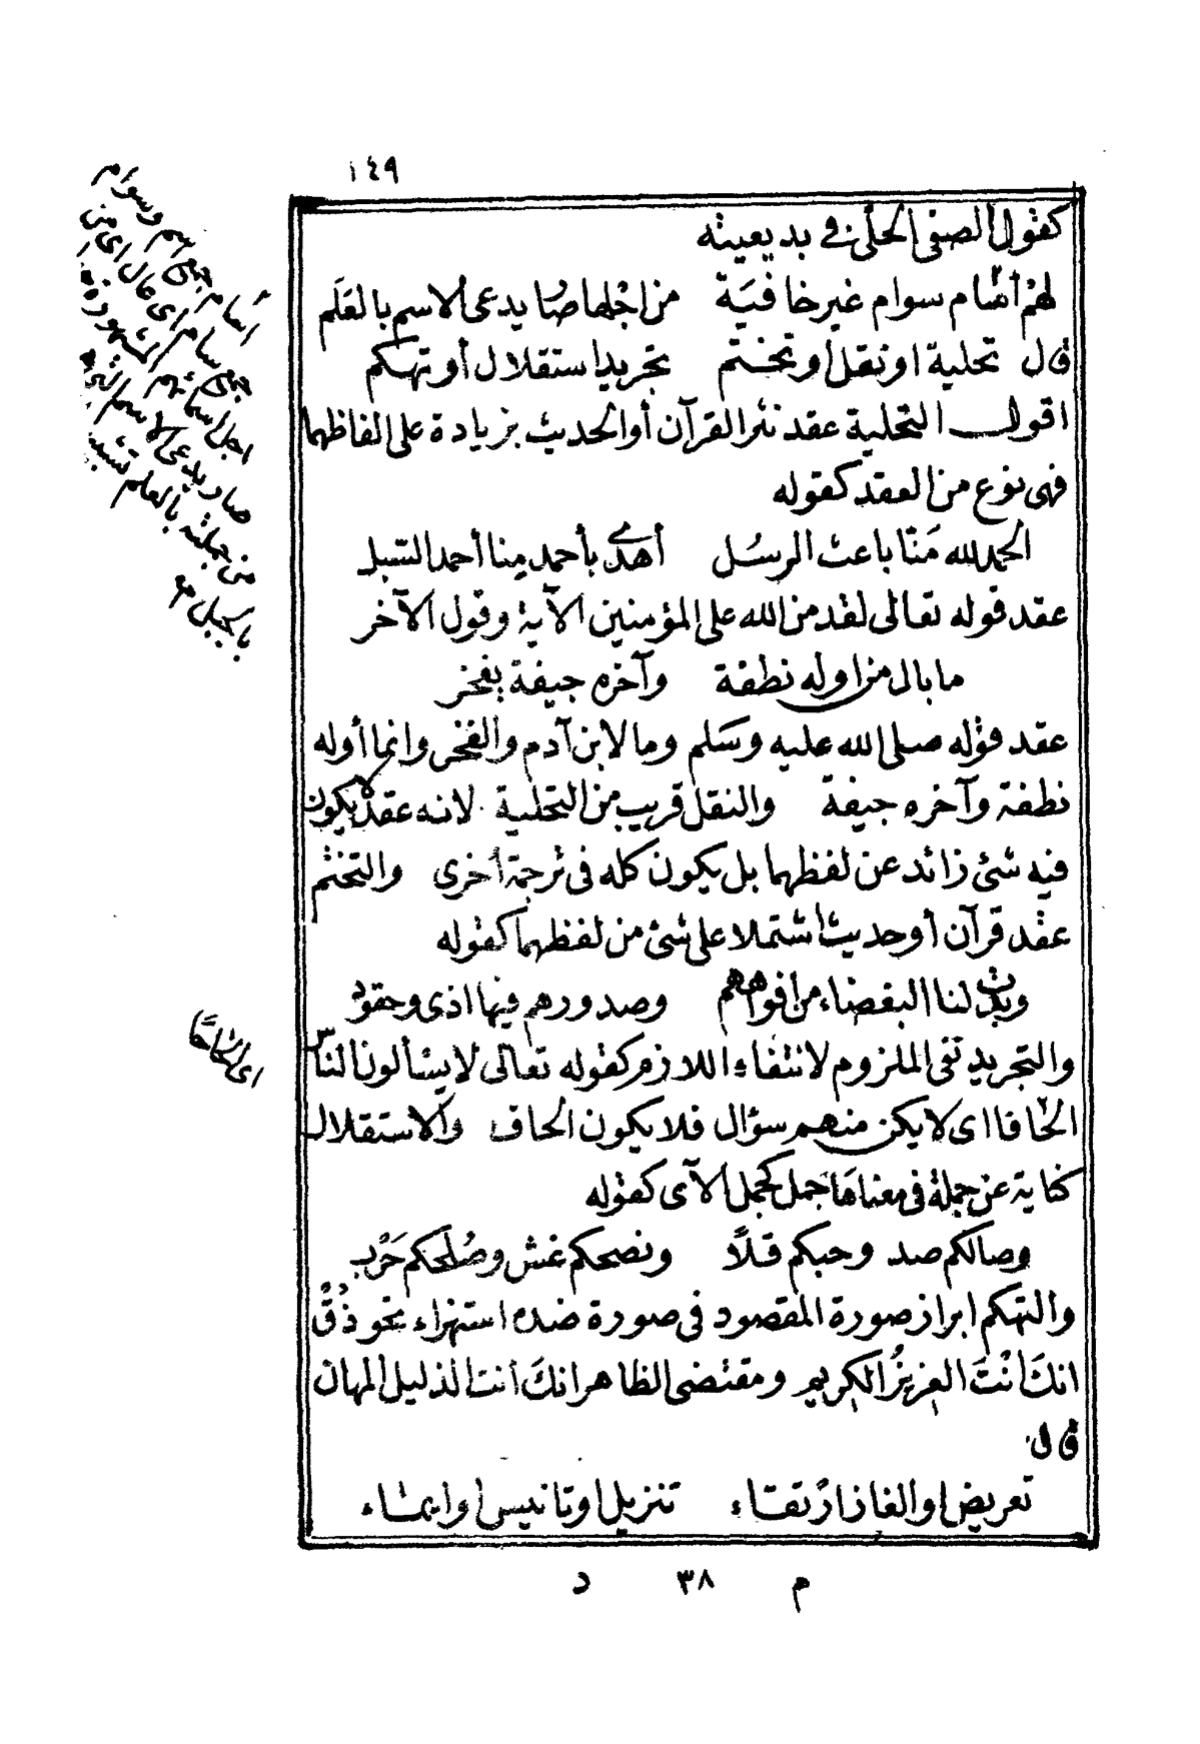 ١٤٩
كقول الصفى الحلى فى بديعيته
لهم أسام سوام غير خافية من اجلها صار يدعى الاسم بالعلم
قال تحلية او نقل أو تختم تجريد استقلال أو تهكم
اقول التحلية عقد نثر القرآن أو الحديث بزيادة على الفاظهما
فهى نوع من العقد كقوله
الحمد لله مَنّا باعث الرسُل أهدى بأحمد منا أحمد السبل
عقد قوله تعالى لقد من الله على المؤمنين الآية وقول الآخر
ما بال من اوله نطفة وآخره جيفة يفخر
عقد قوله صلى الله عليه وسَلم وما لابن آدم والفخر وانما أوله
نطفة وآخره جيفة والنقل قريب من التحلية لانه عقد لا يكون
فيه شئ زائد عن لفظهما بل يكون كله فى ترجمة أخرى والتختم
عقد قرآن أو حديث اشتملا على شئ من لفظهما كقوله
وبدت لنا البغضاء من أفواههم وصدورهم فيها اذى وحقود
والتجريد نفى الملزوم لانتفاء اللازم كقوله تعالى لا يسألون الناس
الحافا اى لا يكن منهم سؤال فلا يكون الحاف والاستقلال
كناية عن جملة فى معناهَا جمل كجمل الآى كقوله
وصالكم صد وحبكم قلاً ونصحكم غش وصُلحكم حَرْب
والتهكم ابراز صورة المقصود فى صورة ضده استهزاء نحو ذُقْ
انكَ أنْتَ العزيزُ الكريم ومقتضى الظاهر انكَ أنت الذليل المهان
قال
تعريض او الغاز ارتقاء تنزيل او تانيس او ايماء
م ٣٨ د
أسام جمع اسم وسوام
جمع سام اى عال اى من
اجل اسمائهم المشهودة
صار يدعى الاسم الذى
من جملته بالعلم تشبيه
بالجبل مه
اى الحاحًا